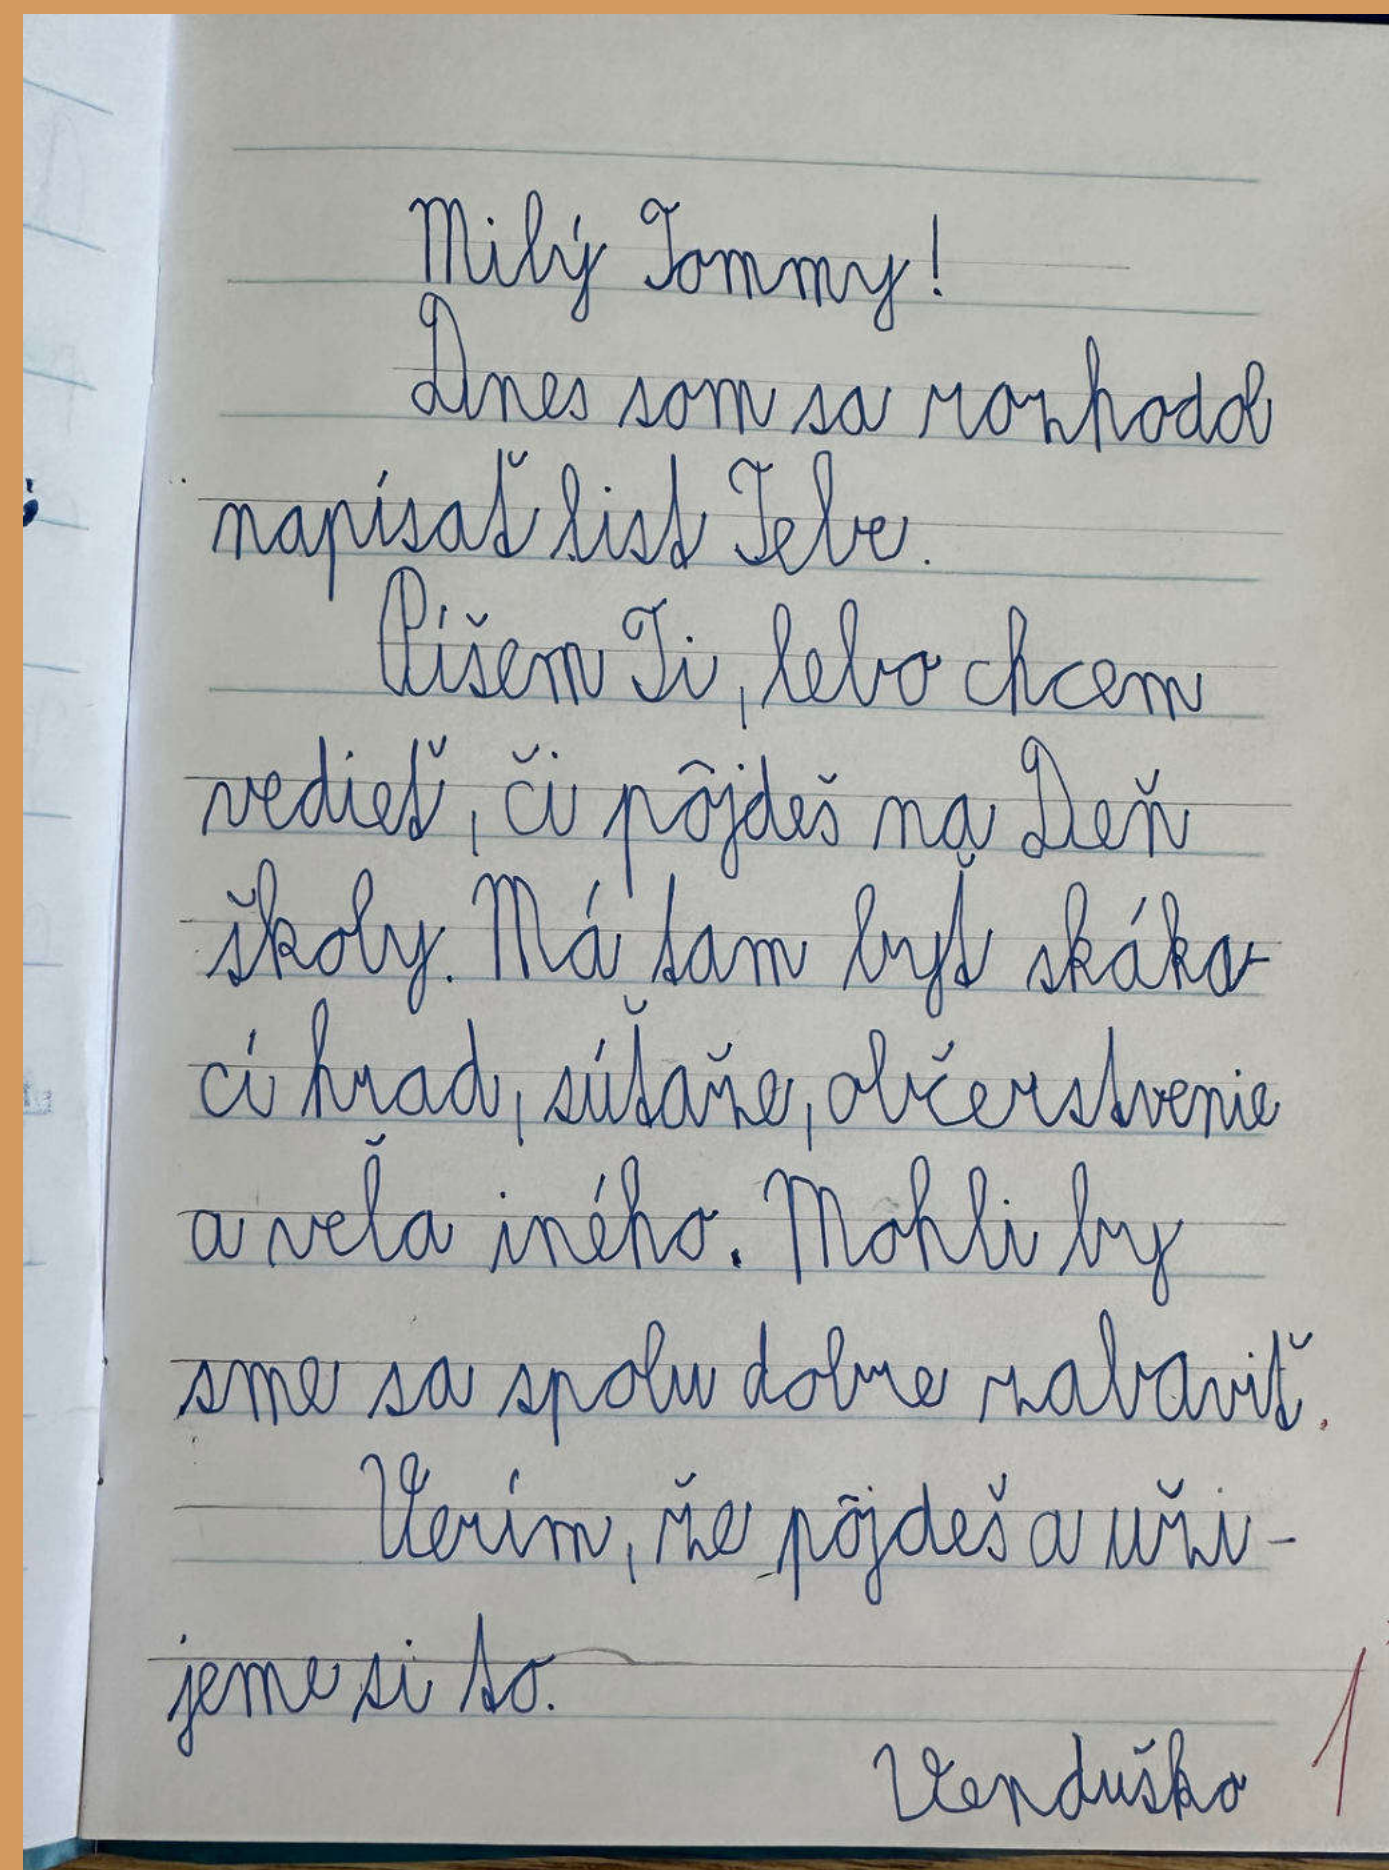 Milý Tommy!
Dnes som sa rozhodol
napísať list Tebe.
Píšem Ti, lebo chcem
vedieť, či pôjdeš na Deň
školy. Má tam byť skáka-
cí hrad, súťaže, občerstvenie
a veľa iného. Mohli by
sme sa spolu dobre zabaviť.
Verím, že pôjdeš a uži-
jeme si to.
Venduško
1